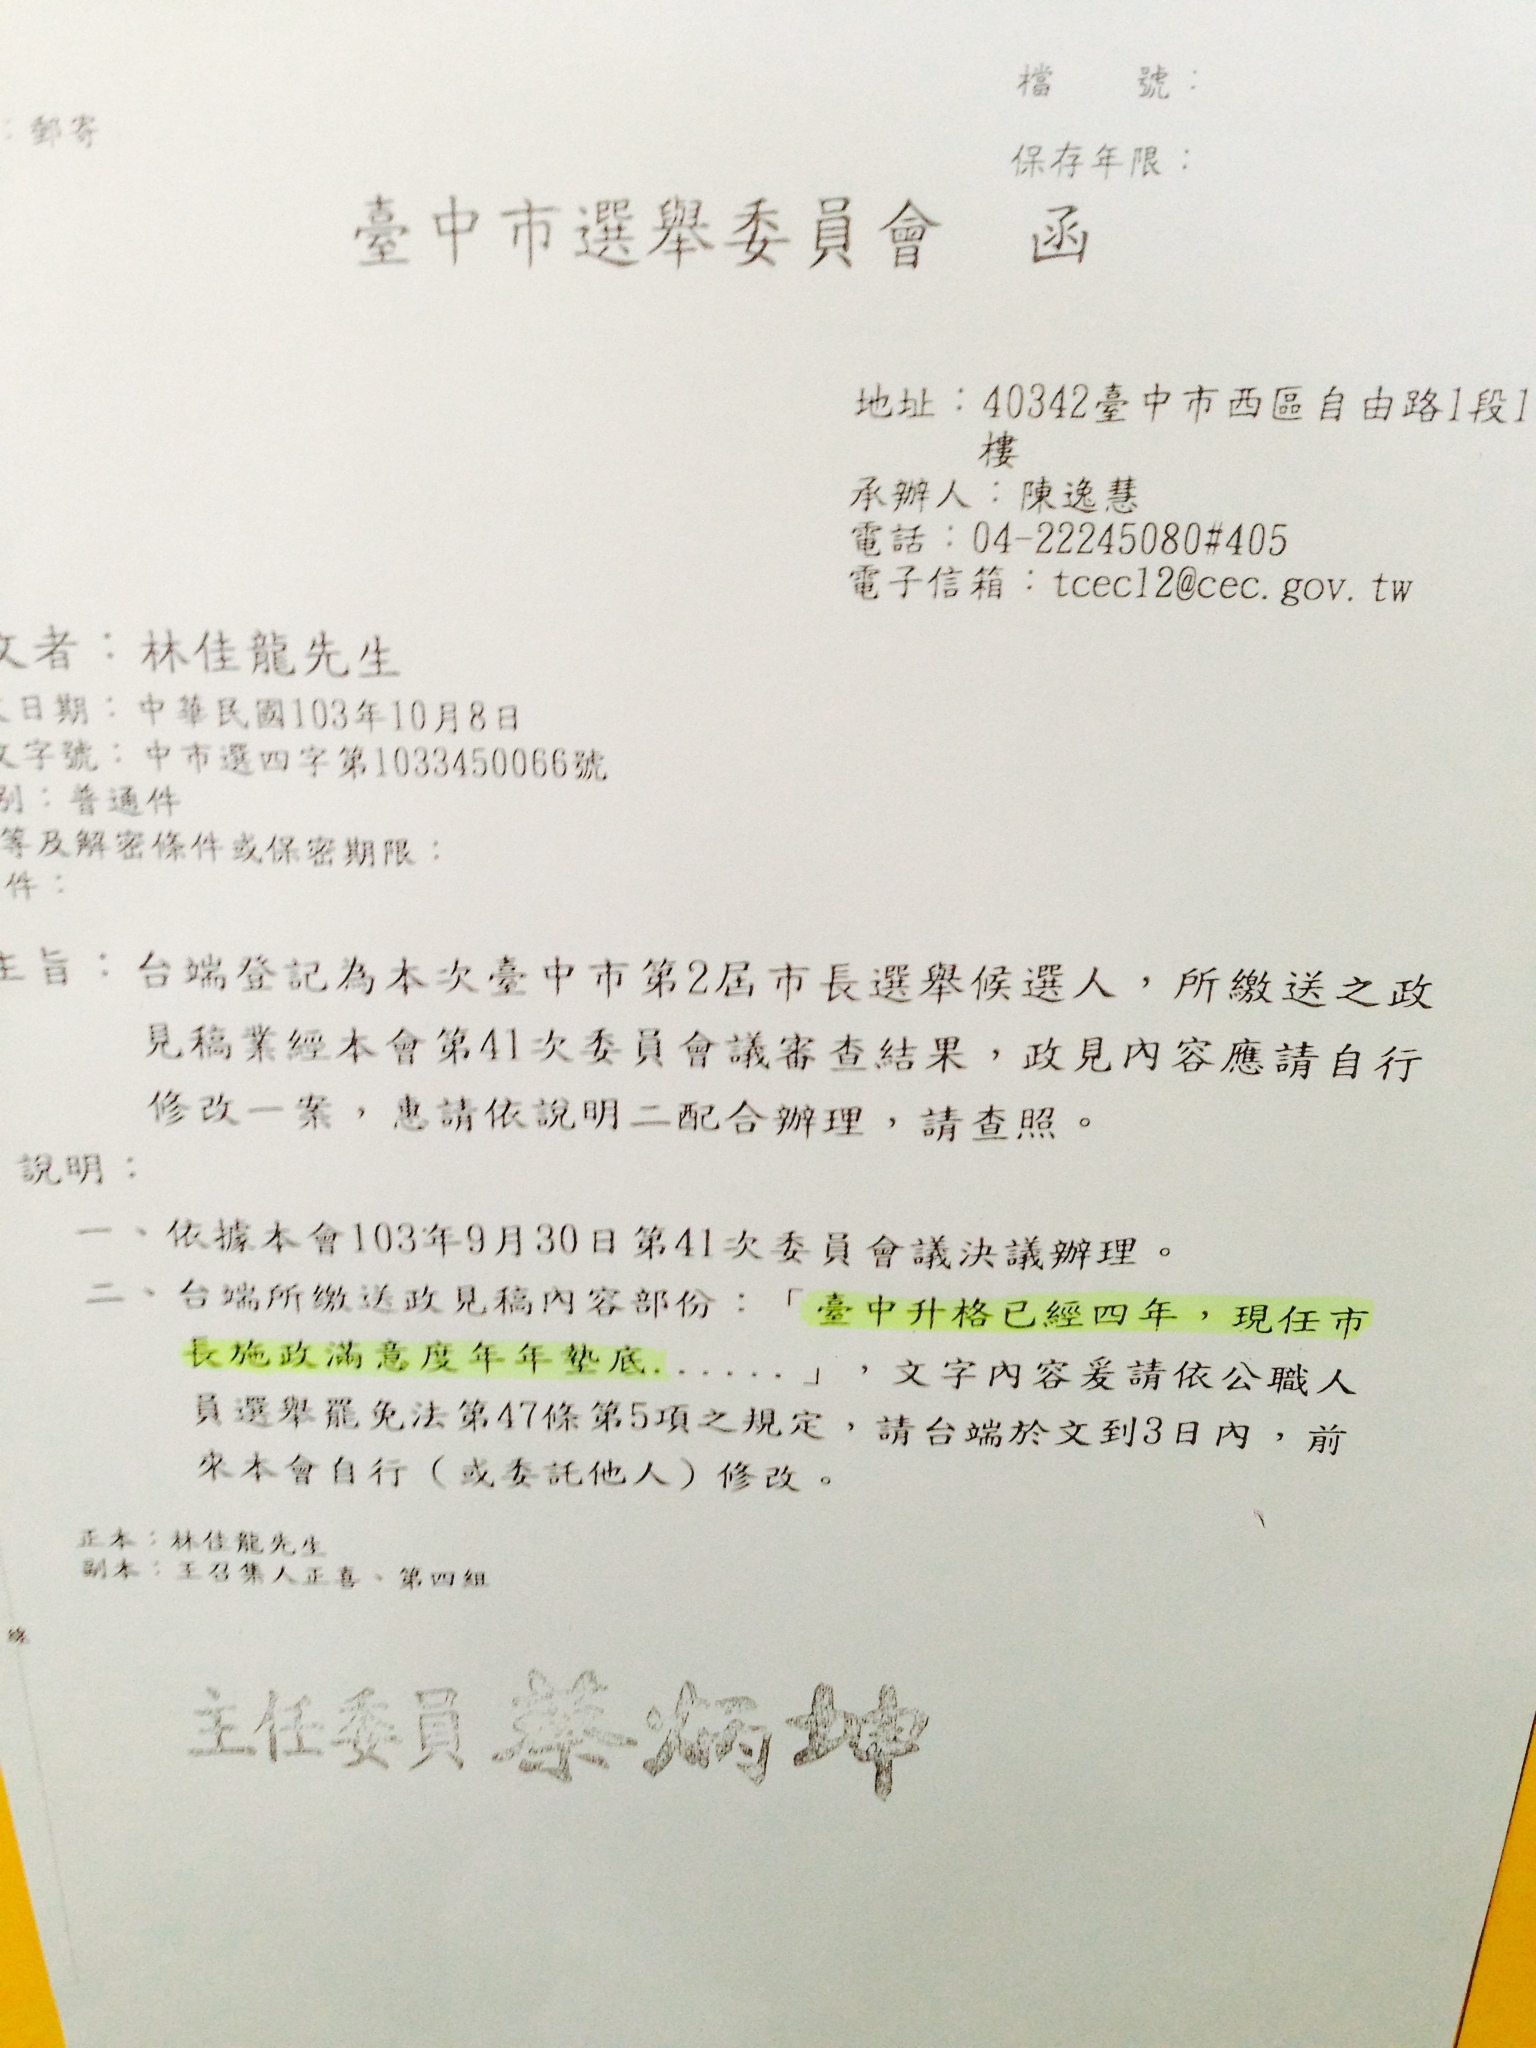 檔　　號：
：郵寄
保存年限：
臺中市選舉委員會　函
地址：40342臺中市西區自由路1段1
樓
承辦人：陳逸慧
電話：04-22245080#405
電子信箱：tcec12@cec.gov.tw
文者：林佳龍先生
文日期：中華民國103年10月8日
文字號：中市選四字第1033450066號
別：普通件
等及解密條件或保密期限：
件：
主旨：台端登記為本次臺中市第2屆市長選舉候選人，所繳送之政
見稿業經本會第41次委員會議審查結果，政見內容應請自行
修改一案，惠請依說明二配合辦理，請查照。
說明：
一、依據本會103年9月30日第41次委員會議決議辦理。
二、台端所繳送政見稿內容部份：「臺中升格已經四年，現任市
長施政滿意度年年墊底.......」，文字內容爰請依公職人
員選舉罷免法第47條第5項之規定，請台端於文到3日內，前
來本會自行（或委託他人）修改。
正本：林佳龍先生
副本：王召集人正喜、第四組
線
主任委員 蔡炳坤